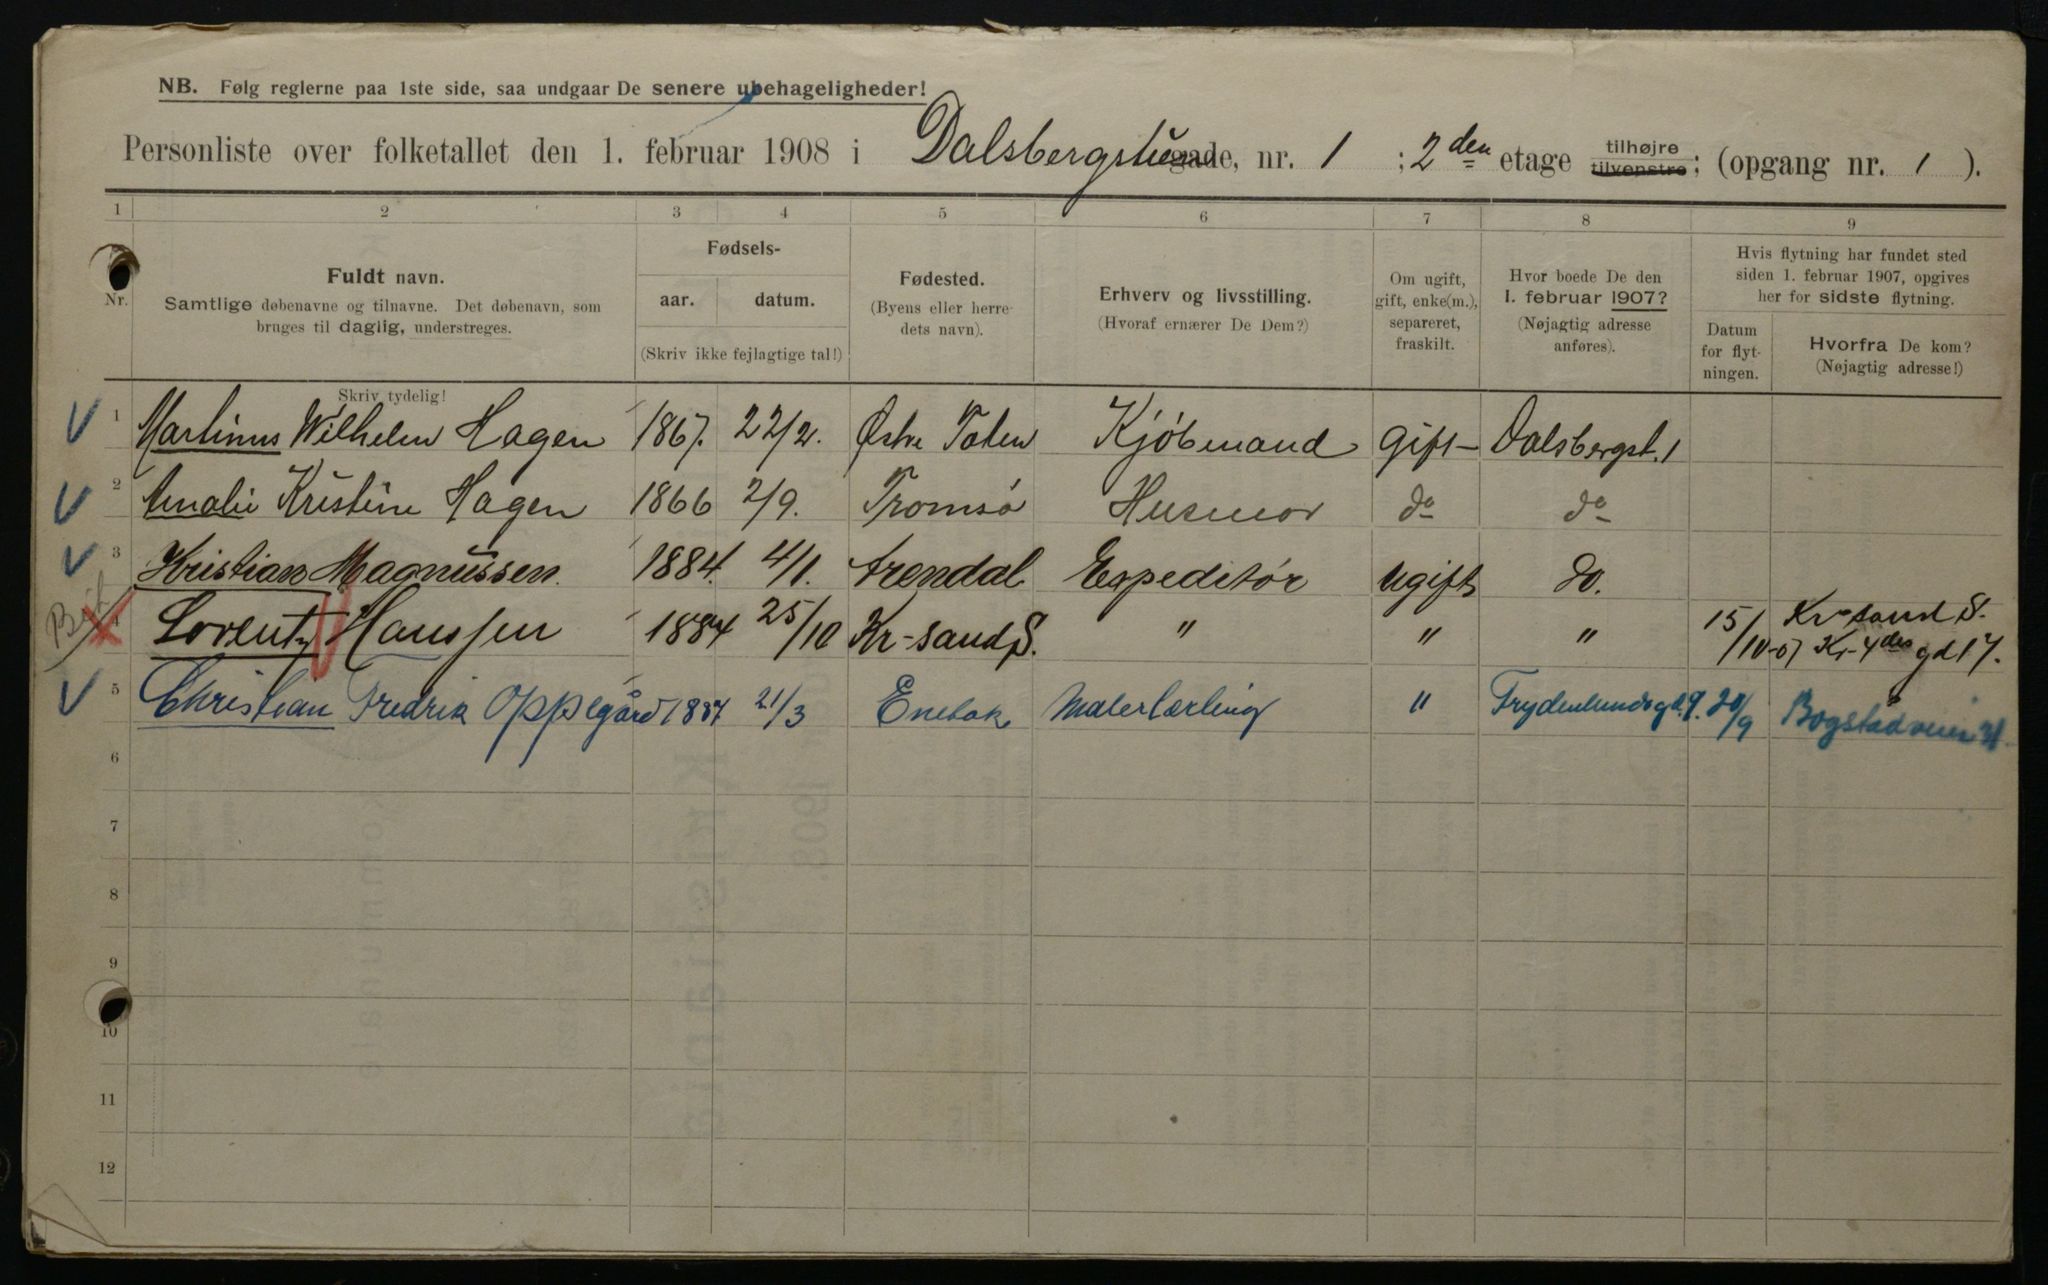 NB. Følg reglerne paa 1ste side, saa undgaar De senere ubehageligheder!
Personliste over folketallet den 1. februar 1908 i Dalsbergstien gade, nr. 1 ; 2den etage tilhøjre tilvenstre; (opgang nr. 1 ).
1 2 3 4 5 6 7 8 9
Nr.
Fuldt navn.
Samtlige døbenavne og tilnavne. Det døbenavn, som
bruges til daglig, understreges.
Skriv tydelig!
Fødsels-
aar. datum.
(Skriv ikke fejlagtige tal!)
Fødested.
(Byens eller herre-
dets navn).
Erhverv og livsstilling.
(Hvoraf ernærer De Dem?)
Om ugift,
gift, enke(m.),
separeret,
fraskilt.
Hvor boede De den
1. februar 1907?
(Nøjagtig adresse
anføres).
Hvis flytning har fundet sted
siden 1. februar 1907, opgives
her for sidste flytning.
Datum
for flyt-
ningen.
Hvorfra De kom?
(Nøjagtig adresse!)
1 Martinus Wilhelm Hagen 1867. 22/2. Østre Toten Kjøbmand gift Dalsbergst. 1
2 Amalie Kristine Hagen 1866 2/9. Tromsø Husmor do do
3 Kristian Magnussen. 1884. 4/1. Arendal Expeditør ugift do.
4 Lorentz Hanssen 1884 25/10 Kr-sand S. " " " 15/10-07 Kr-sand S.
Kr-4des gd 17.
5 Christian Fredrik Oppegård 1887 21/3 Enebak Malerlærling " Frydenlundsgd. 9. 20/9 Bogstadveien 31
6
7
8
9
10
11
12